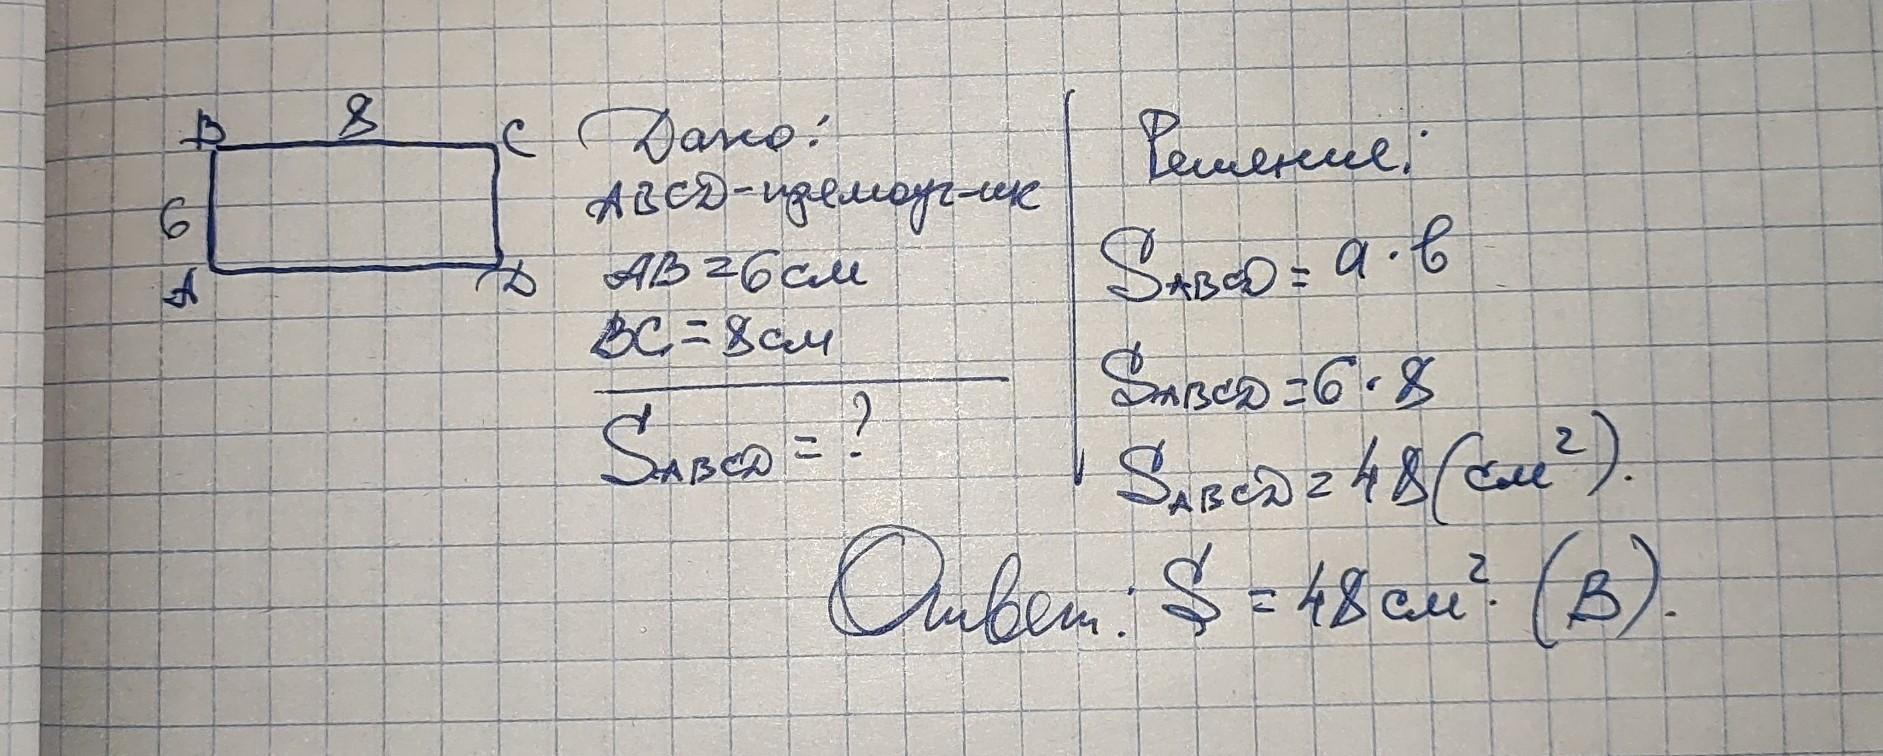 B 8 C
6
A D
Дано:
ABCD-прямоуг-ик
AB=6см
BC=8см
SABCD=?
Решение:
SABCD=a·b
SABCD=6·8
SABCD=48(см²).
Ответ: S=48см². (B).